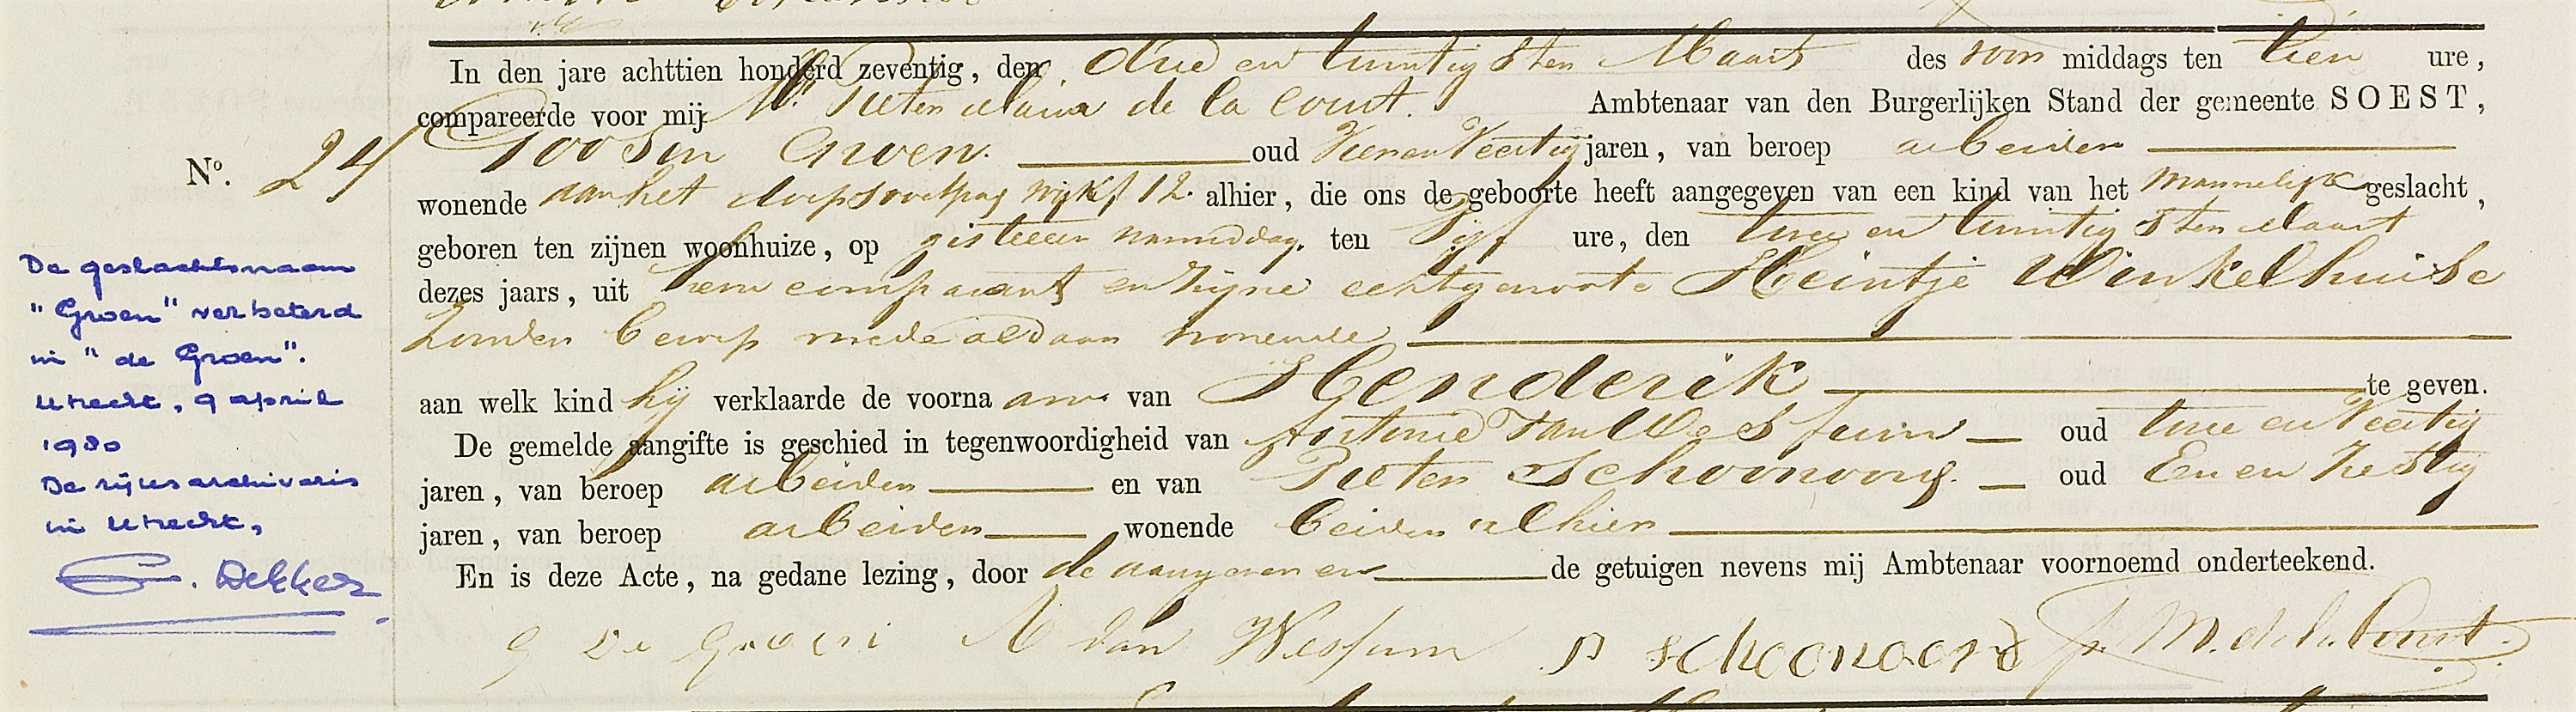 In den jare achttien honderd zeventig, den drie en twintigsten Maart des voor middags ten tien ure,
compareerde voor mij Mr. Pieter Maria de la Court. Ambtenaar van den Burgerlijken Stand der gemeente SOEST,
Goosen Groen. oud Vier en Veertig jaren, van beroep arbeider
wonende aan het wijk f 12. alhier, die ons de geboorte heeft aangegeven van een kind van het mannelijk geslacht,
geboren ten zijnen woonhuize, op gisteren namiddag. ten Vijf ure, den twee en twintigsten Maart
dezes jaars, uit hem comparant en zijne echtgenoote Heintje Winkelhuise
zonder beroep mede aldaar wonende
aan welk kind hij verklaarde de voorna am van Henderik te geven.
De gemelde aangifte is geschied in tegenwoordigheid van Antonie van Wessum oud twee en Veertig
jaren, van beroep arbeider en van Pieter Schoonoord. oud Een en Zestig
jaren, van beroep arbeider wonende beiden alhier
En is deze Acte, na gedane lezing, door de aangever en de getuigen nevens mij Ambtenaar voornoemd onderteekend.
G De Groen A van Wessum P schoonoord P. M. de la Court.
No. 24
De geslachtsnaam
"Groen" verbeterd
in "de Groen".
Utrecht, 9 april
1980
De rijksarchivaris
in Utrecht,
C. Dekker